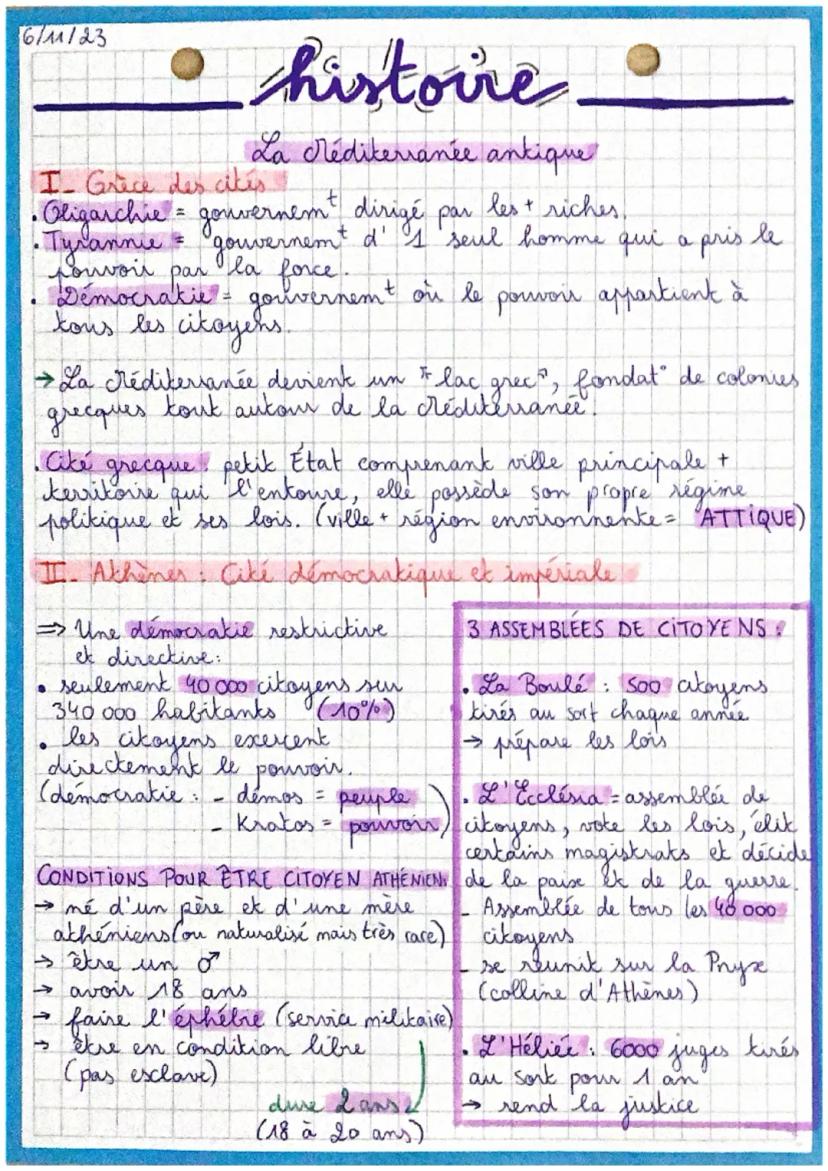 6/11/23
histoire
La Méditerranée antique
I- Grèce des cités
. Oligarchie = gouvernemt dirigé par les + riches.
. Tyrannie = gouvernemt d' 1 seul homme qui a pris le
pouvoir par la force.
. Démocratie = gouvernemt où le pouvoir appartient à
tous les citoyens.
→ La Méditerranée devient un "lac grec", fondat° de colonies
grecques tout autour de la Méditerranée.
. Cité grecque : petit État comprenant ville principale +
territoire qui l'entoure, elle possède son propre régime
politique et ses lois. (ville + région environnente = ATTIQUE)
II- Athènes : Cité démocratique et impériale
⇒ Une démocratie restrictive
et directive :
• seulement 40 000 citoyens sur
340 000 habitants (10%)
• les citoyens exercent
directement le pouvoir.
(démocratie : - démos = peuple
- Kratos = pouvoir)
CONDITIONS POUR ÊTRE CITOYEN ATHÉNIEN:
→ né d'un père et d'une mère
athéniens (ou naturalisé mais très rare)
→ être un ♂
→ avoir 18 ans
→ faire l'éphébie (service militaire)
→ être en condition libre
(pas esclave)
dure 2 ans
(18 à 20 ans)
3 ASSEMBLÉES DE CITOYENS :
. La Boulé : 500 citoyens
tirés au sort chaque année
→ prépare les lois
. L'Ecclésia = assemblée de
citoyens, vote les lois, élit
certains magistrats et décide
de la paix et de la guerre.
- Assemblée de tous les 40 000
citoyens
- se réunit sur la Pnyx
(colline d'Athènes)
. L'Héliée : 6000 juges tirés
au sort pour 1 an
→ rend la justice